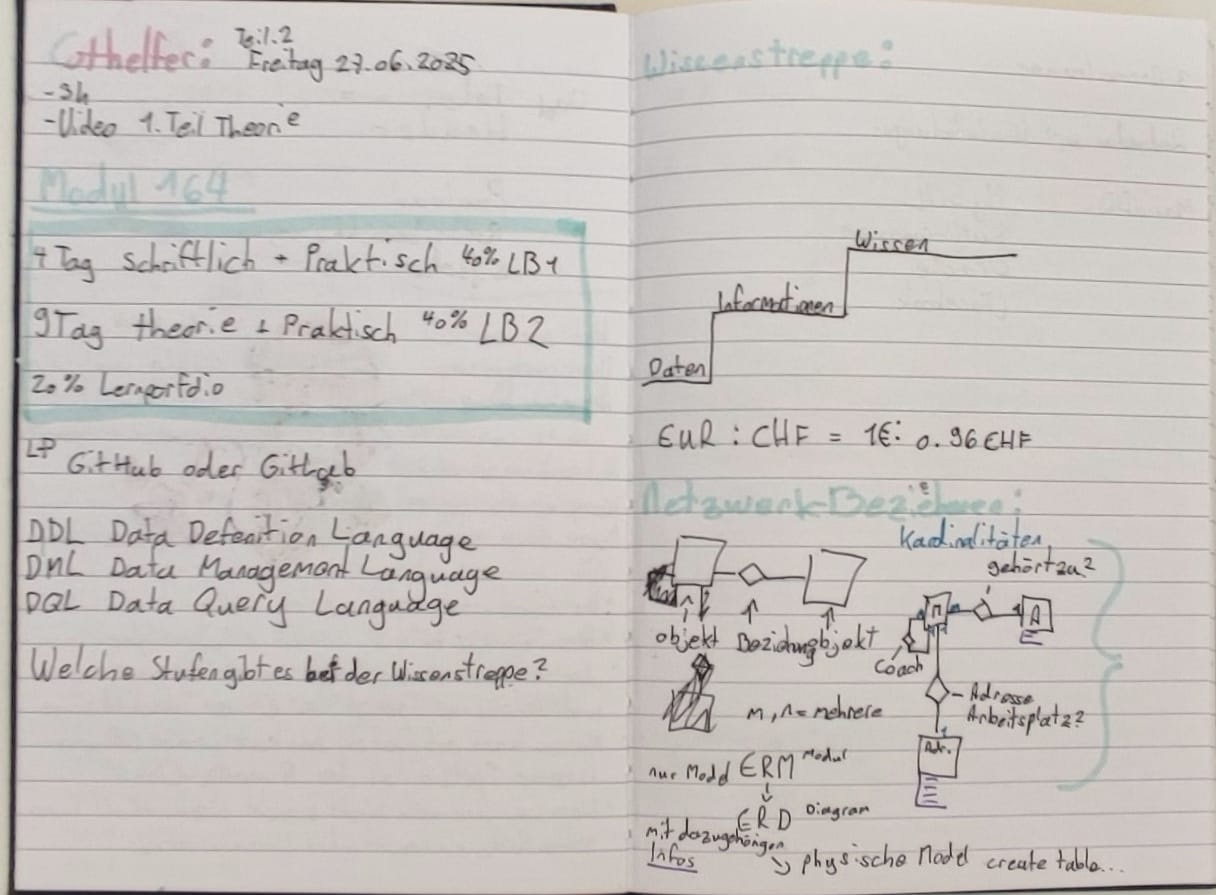 Othelfer: Teil.2
Freitag 27.06.2025
-3h
-Video 1. Teil Theorie
Modul 164
4 Tag Schriftlich + Praktisch 40% LB1
9 Tag theorie + Praktisch 40% LB2
20% Lernportfolio
LP GitHub oder Gitlab
DDL Data Defenition Language
DML Data Management Language
DQL Data Query Language
Welche Stufen gibt es bei der Wissenstreppe?
Wissenstreppe:
Wissen
Informationen
Daten
EUR : CHF = 1€: 0.96 CHF
Netzwerk-Beziehnen:
Kardinalitäten
gehört zu?
objekt Beziehung objekt
M
A
Coach
m, n = mehrere
Adresse
Arbeitsplatz?
1
Adr.
nur Modd ERM Modul
ERD Diagram
mit dazugehörigen
Infos
physische Model create table...